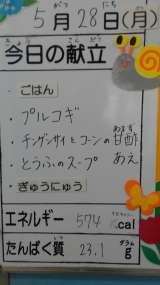 5月28日(月)
今日の献立
・ごはん
・プルコギ
・チンゲンサイとコーンの甘酢あえ
・とうふのスープ
・ぎゅうにゅう
エネルギー 574 kcal
たんぱく質 23.1 g